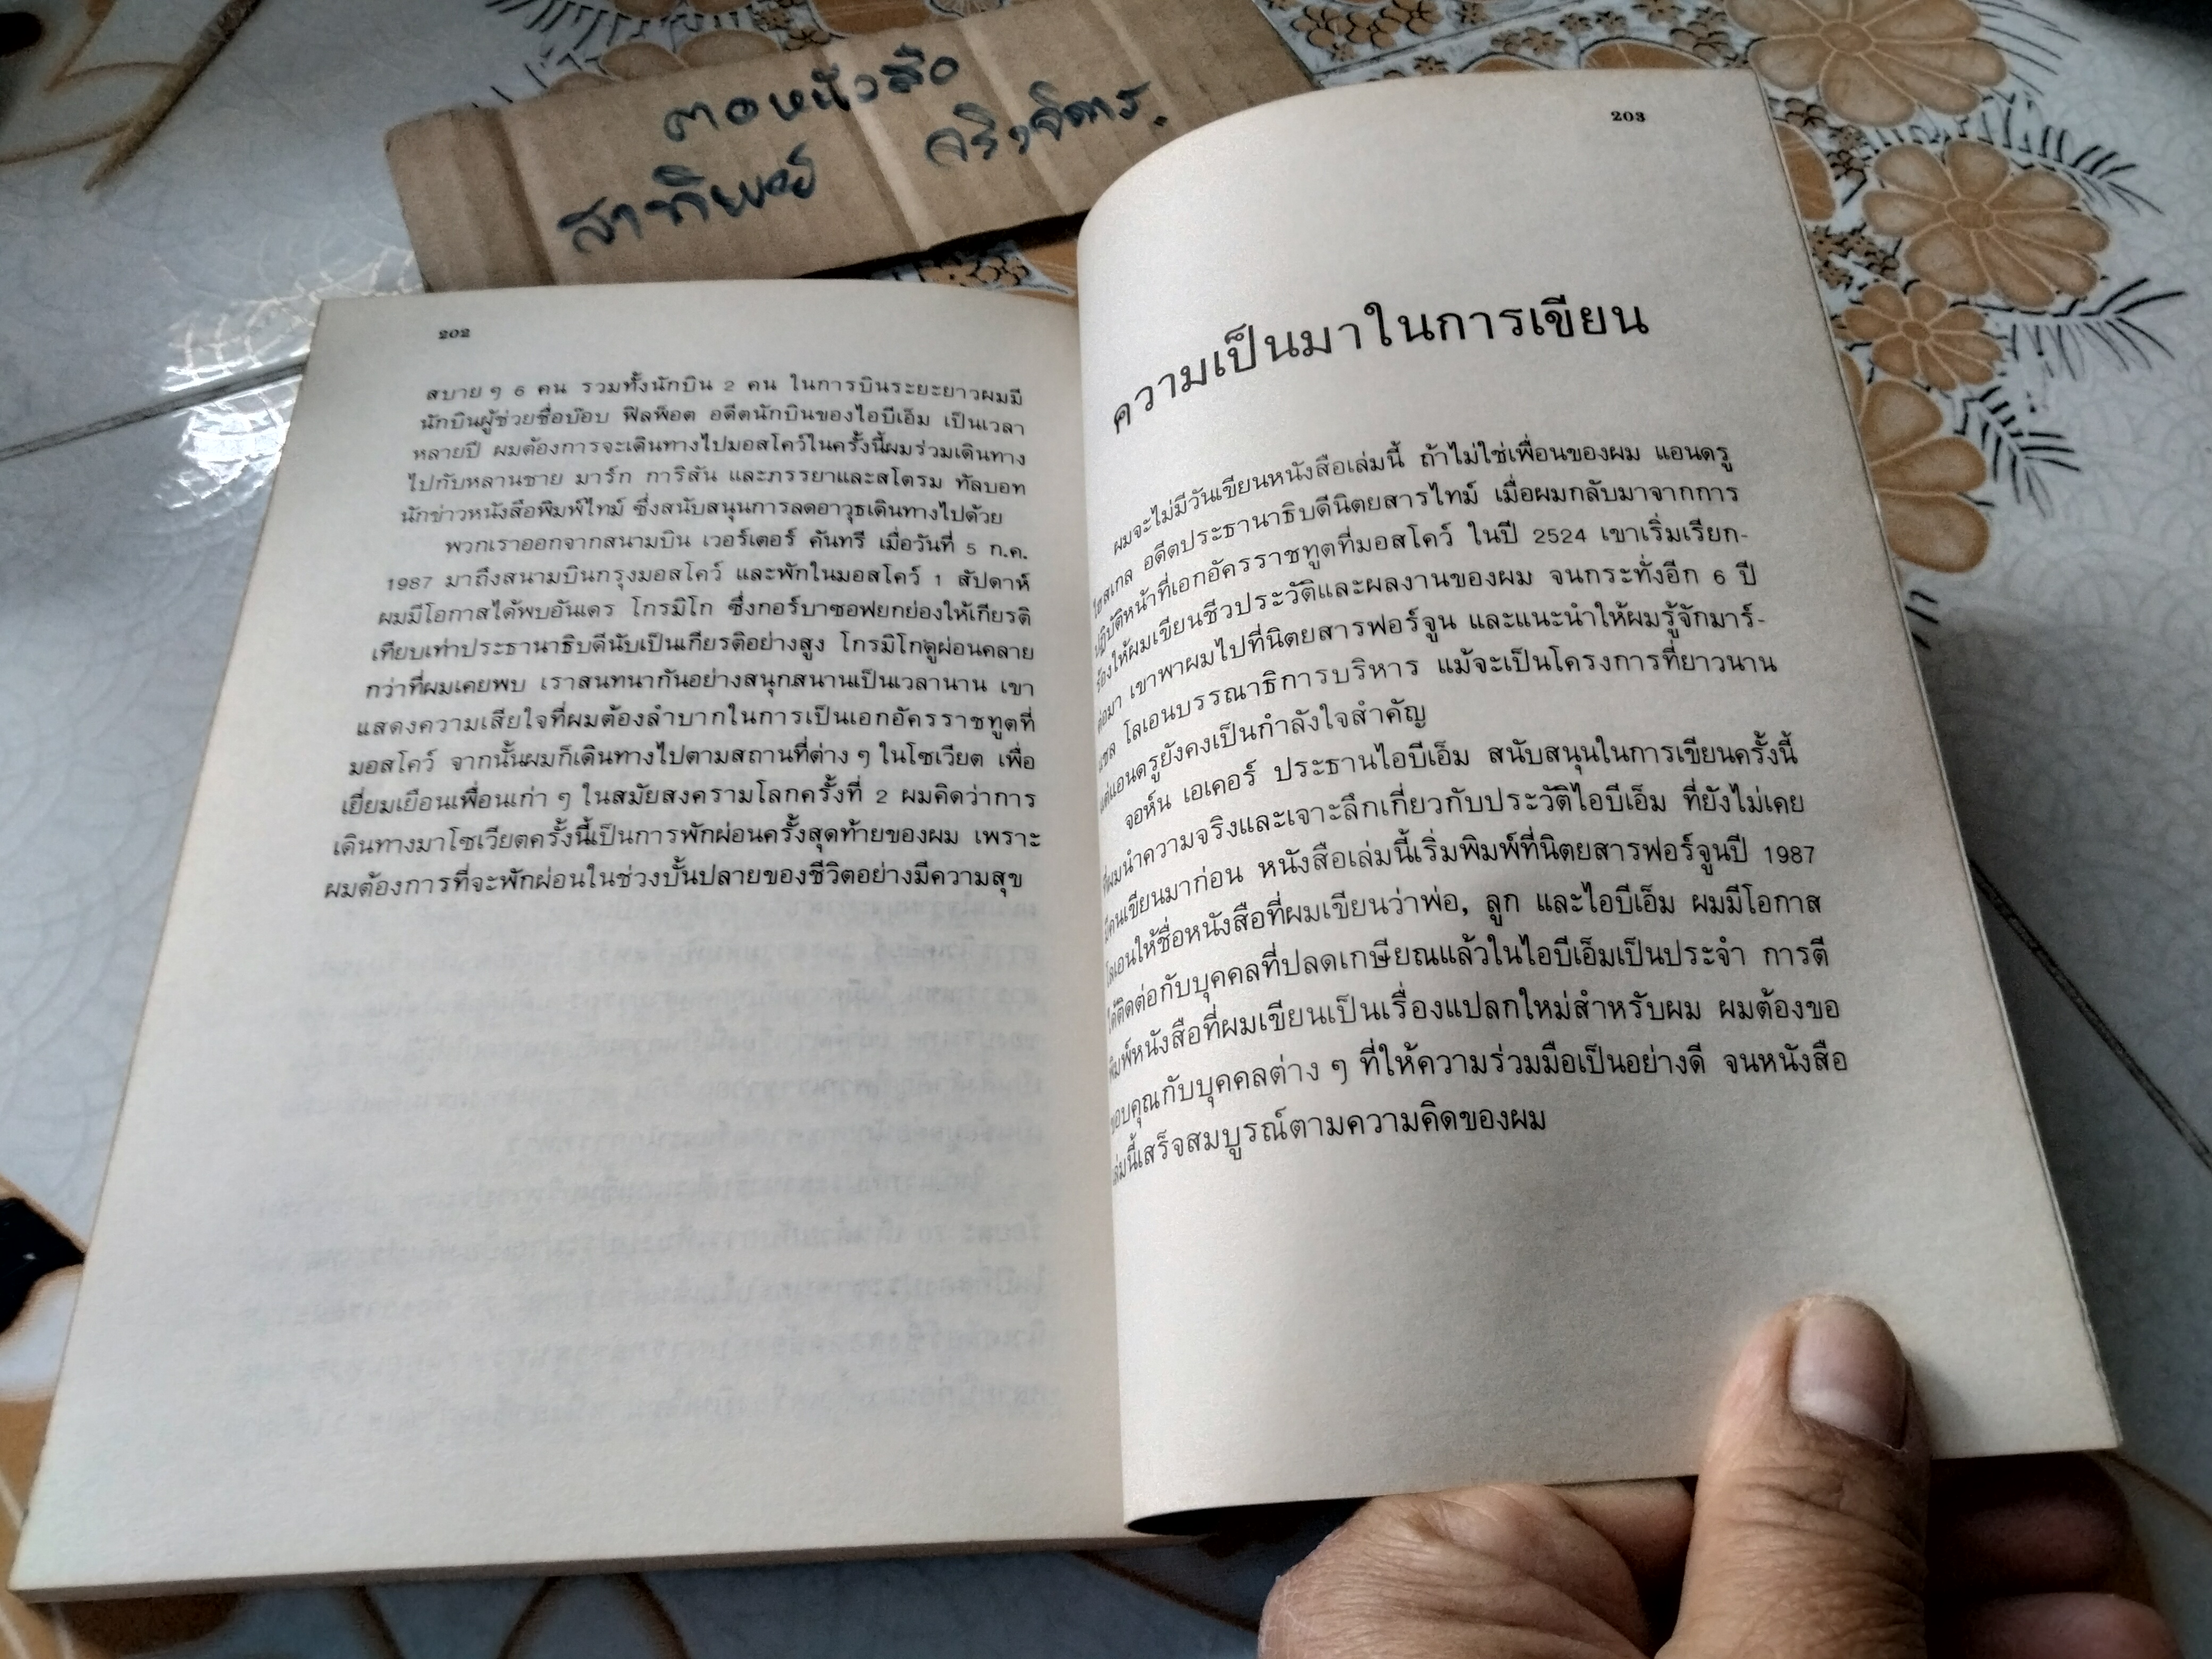 ตอหนังสือ
สาทิพย์ จริงจิตร.
202
สบาย ๆ 6 คน รวมทั้งนักบิน 2 คน ในการบินระยะยาวผมมี
นักบินผู้ช่วยชื่อบ๊อบ ฟิลพ็อต อดีตนักบินของไอบีเอ็ม เป็นเวลา
หลายปี ผมต้องการจะเดินทางไปมอสโคว์ในครั้งนี้ผมร่วมเดินทาง
ไปกับหลานชาย มาร์ก การิสัน และภรรยาและสโตรม ทัลบอท
นักข่าวหนังสือพิมพ์ไทม์ ซึ่งสนับสนุนการลดอาวุธเดินทางไปด้วย
พวกเราออกจากสนามบิน เวอร์เตอร์ คันทรี เมื่อวันที่ 5 ก.ค.
1987 มาถึงสนามบินกรุงมอสโคว์ และพักในมอสโคว์ 1 สัปดาห์
ผมมีโอกาสได้พบอันเดร โกรมิโก ซึ่งกอร์บาซอฟยกย่องให้เกียรติ
เทียบเท่าประธานาธิบดีนับเป็นเกียรติอย่างสูง โกรมิโกดูผ่อนคลาย
กว่าที่ผมเคยพบ เราสนทนากันอย่างสนุกสนานเป็นเวลานาน เขา
แสดงความเสียใจที่ผมต้องลำบากในการเป็นเอกอัครราชทูตที่
มอสโคว์ จากนั้นผมก็เดินทางไปตามสถานที่ต่าง ๆ ในโซเวียต เพื่อ
เยี่ยมเยือนเพื่อนเก่า ๆ ในสมัยสงครามโลกครั้งที่ 2 ผมคิดว่าการ
เดินทางมาโซเวียตครั้งนี้เป็นการพักผ่อนครั้งสุดท้ายของผม เพราะ
ผมต้องการที่จะพักผ่อนในช่วงบั้นปลายของชีวิตอย่างมีความสุข
203
ความเป็นมาในการเขียน
ผมจะไม่มีวันเขียนหนังสือเล่มนี้ ถ้าไม่ใช่เพื่อนของผม แอนดรู
ไฮสเกล อดีตประธานาธิบดีนิตยสารไทม์ เมื่อผมกลับมาจากการ
ปฏิบัติหน้าที่เอกอัครราชทูตที่มอสโคว์ ในปี 2524 เขาเริ่มเรียก-
ร้องให้ผมเขียนชีวประวัติและผลงานของผม จนกระทั่งอีก 6 ปี
ต่อมา เขาพาผมไปที่นิตยสารฟอร์จูน และแนะนำให้ผมรู้จักมาร์-
แชล โลเอนบรรณาธิการบริหาร แม้จะเป็นโครงการที่ยาวนาน
แต่แอนดรูยังคงเป็นกำลังใจสำคัญ
จอห์น เอเคอร์ ประธานไอบีเอ็ม สนับสนุนในการเขียนครั้งนี้
ที่ผมนำความจริงและเจาะลึกเกี่ยวกับประวัติไอบีเอ็ม ที่ยังไม่เคย
มีคนเขียนมาก่อน หนังสือเล่มนี้เริ่มพิมพ์ที่นิตยสารฟอร์จูนปี 1987
โลเอนให้ชื่อหนังสือที่ผมเขียนว่าพ่อ, ลูก และไอบีเอ็ม ผมมีโอกาส
ได้ติดต่อกับบุคคลที่ปลดเกษียณแล้วในไอบีเอ็มเป็นประจำ การตี
พิมพ์หนังสือที่ผมเขียนเป็นเรื่องแปลกใหม่สำหรับผม ผมต้องขอ
ขอบคุณกับบุคคลต่าง ๆ ที่ให้ความร่วมมือเป็นอย่างดี จนหนังสือ
เล่มนี้เสร็จสมบูรณ์ตามความคิดของผม